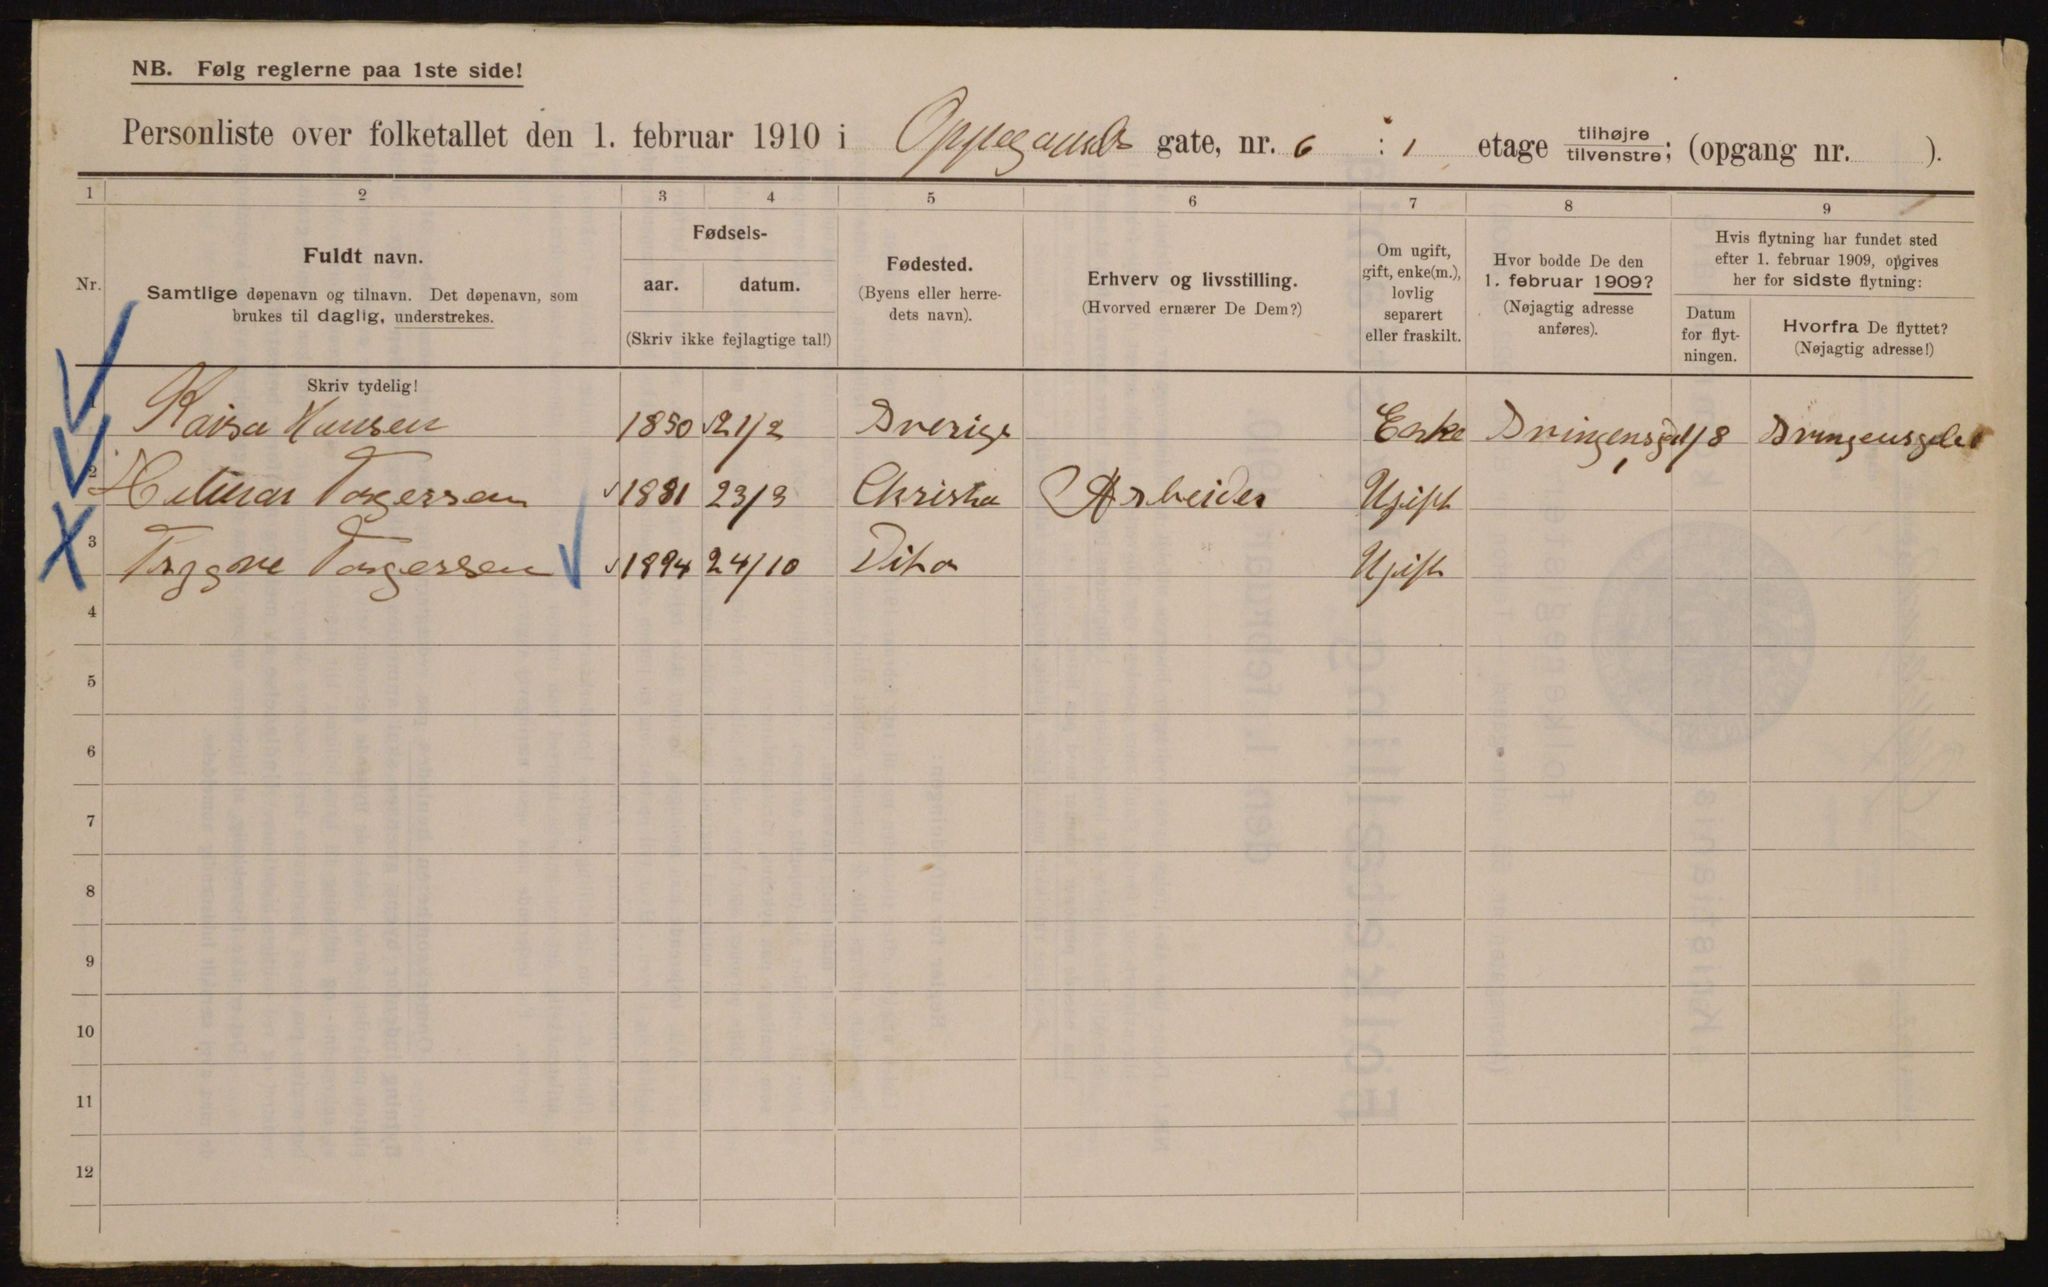 NB. Følg reglerne paa 1ste side!
Personliste over folketallet den 1. februar 1910 i Oppegaards gate, nr. 6 : 1 etage tilhøjre/tilvenstre; (opgang nr. ).
1 2 3 4 5 6 7 8 9
Nr.
Fuldt navn.
Samtlige døpenavn og tilnavn. Det døpenavn, som
brukes til daglig, understrekes.
Fødsels-
aar. datum.
(Skriv ikke fejlagtige tal!)
Fødested.
(Byens eller herre-
dets navn).
Erhverv og livsstilling.
(Hvorved ernærer De Dem?)
Om ugift,
gift, enke(m.),
lovlig
separert
eller fraskilt.
Hvor bodde De den
1. februar 1909?
(Nøjagtig adresse
anføres).
Hvis flytning har fundet sted
efter 1. februar 1909, opgives
her for sidste flytning:
Datum
for flyt-
ningen.
Hvorfra De flyttet?
(Nøjagtig adresse!)
Skriv tydelig!
1 Kaisa Hansen 1850 21/2 Sverige Enke 8
2 Hilmar Torgersen 1881 23/3 Christia Arbeider Ugift
3 Trygve Torgersen 1894 24/10 Dito Ugift
4
5
6
7
8
9
10
11
12